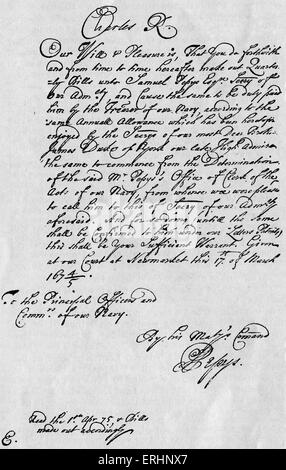 Charles R
Our Will & Pleasure is, That You do forthwith
and from time to time hereafter made out Quarter
Bills unto Samuel Pepys Esqr. Secry of the
our Admty. and cause the same to be duly paid
him by the Treasr of our Navy, according to the
same Annuall Allowance which has been heretofore
enjoyed by the Secrys of our most Dear Brothr
James Duke of York our late High Admirall
the same to commence from the Determination
of the said Mr. Pepys's Office of Clerk of the
Acts of our Navy, from whence wee were please
to call him to that of Secry of our Admty
aforesaid. And
this shall be Your Sufficient Warrant. Given
at our Court at Newmarket this 17. of March
167 4/5
To the Principal Officers and
Commrs. of our Navy.
By his Matys. Comand
SPepys.
Read the 1st. Apr. 75, & Bills
made out accordingly
E.
alamy
Image ID: ERHNX7
www.alamy.com